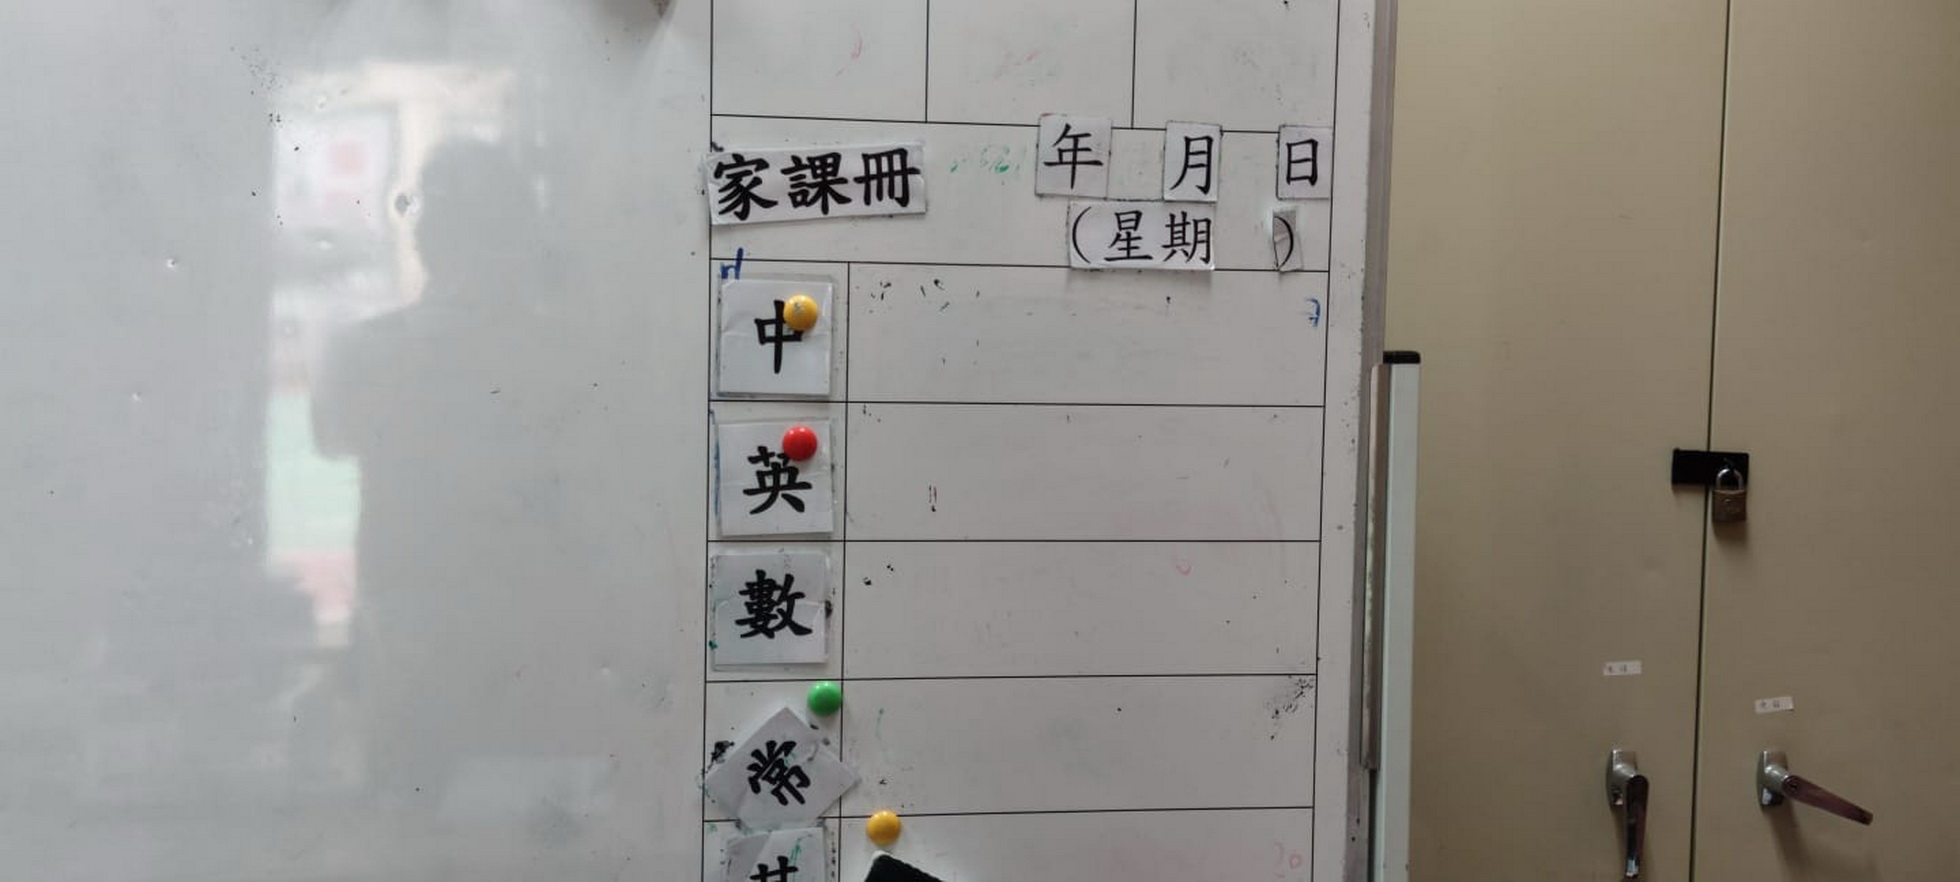 家課冊 年 月 日
(星期 )
中
英
數
常
20